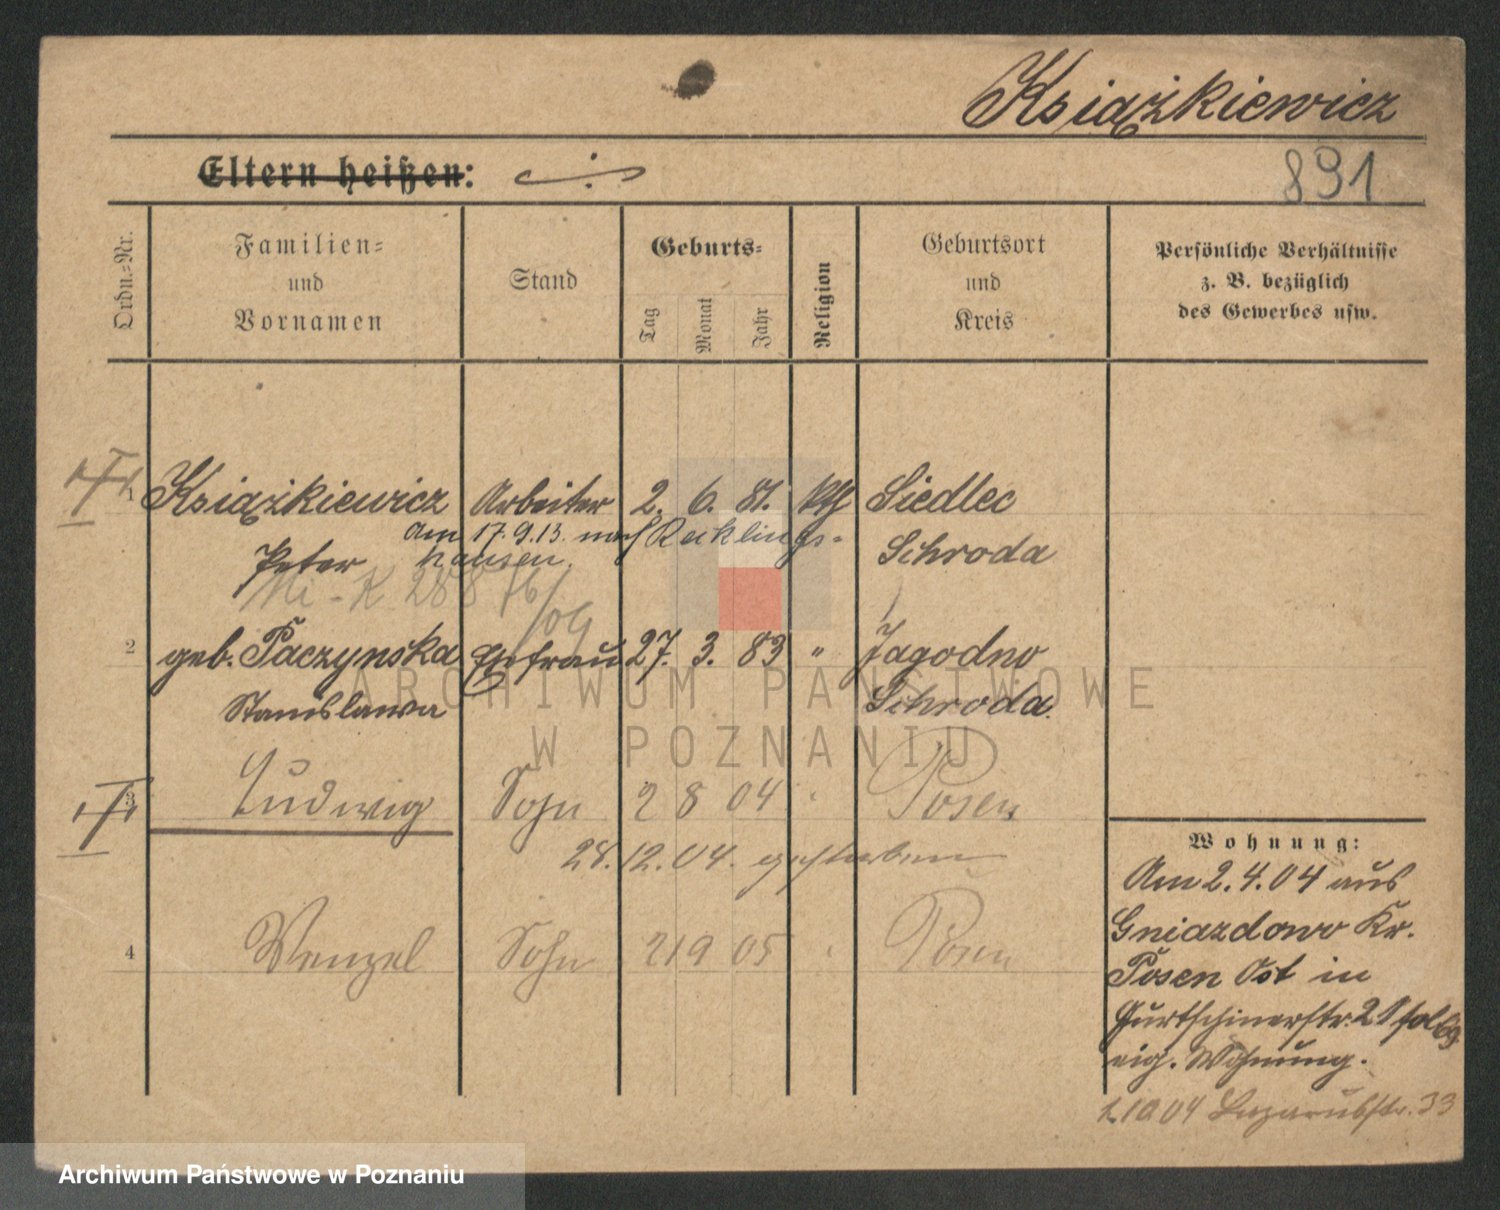 Książkiewicz
Eltern heißen:
891
Ordn.-Nr.
Familien-
und
Vornamen
Stand
Geburts-
Tag
Monat
Jahr
Religion
Geburtsort
und
Kreis
Persönliche Verhältnisse
z. B. bezüglich
des Gewerbes usw.
1 Książkiewicz Arbeiter 2. 6. 81. kth Siedlec
Am 17.9.13. nach Recklings-
Peter hausen. Schroda
2 geb. Paczynska Ehefrau 27. 3. 83 " Jagodno
Stanislawa Schroda.
ARCHIWUM PAŃSTWOWE
W POZNANIU
3 Ludwig Sohn 2 8 04 " Posen
28.12.04. gestorben
4 Wenzel Sohn 21 9 05 " Posen
Wohnung:
Am 2.4.04 aus
Gniazdowo Kr.
Posen Ost in
Gurtschinerstr. 21
eig. Wohnung.
1.10 04 Lazarusstr. 33
Archiwum Państwowe w Poznaniu